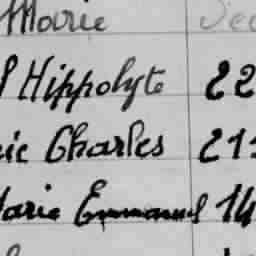 Marie
Hippolyte 22
Charles 211
Marie Emmanuel 14